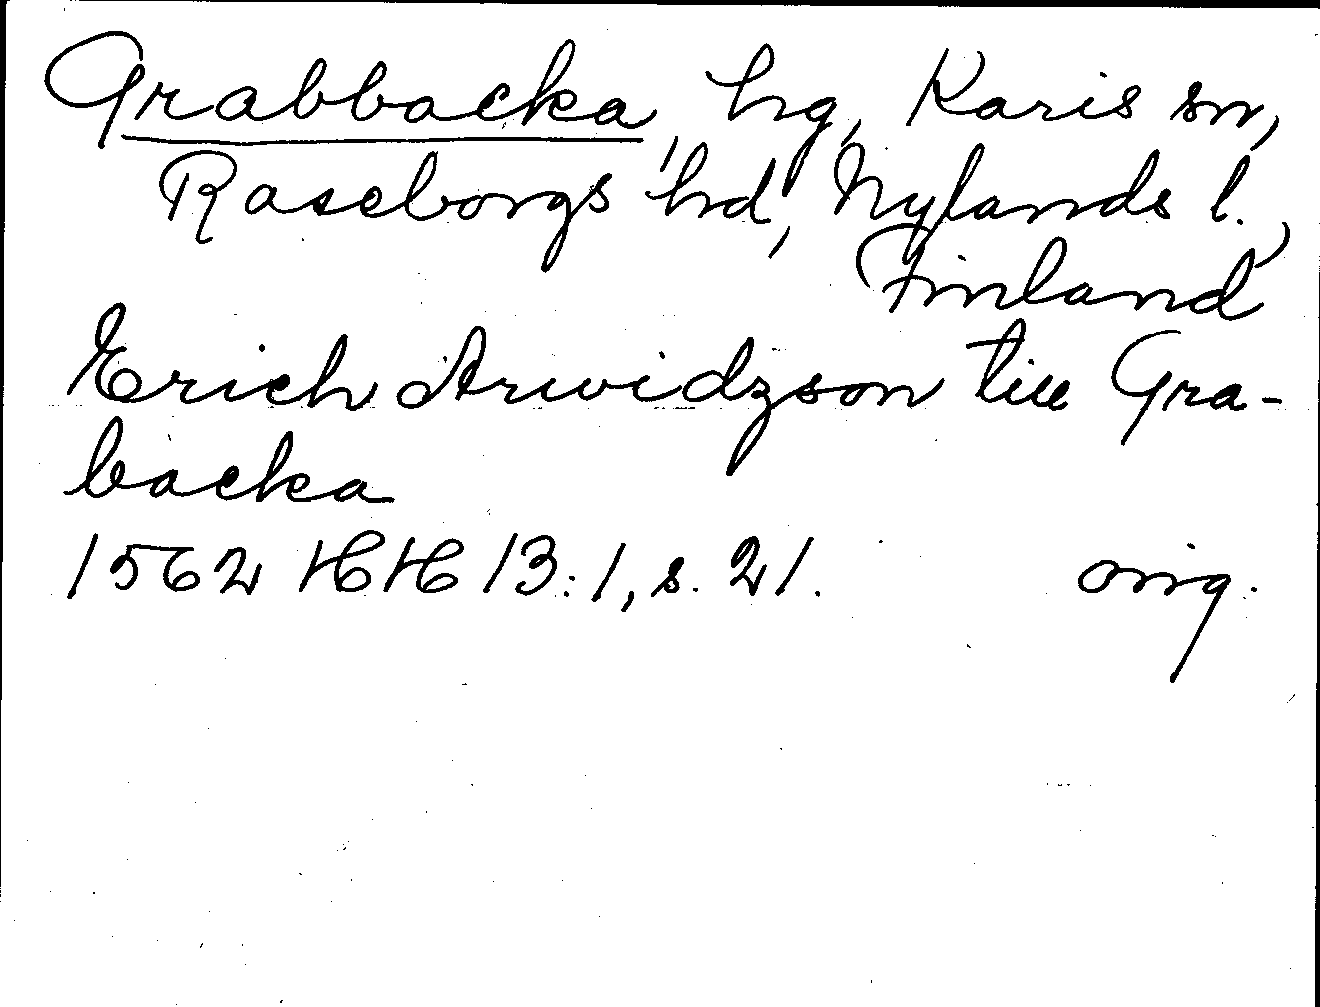 Grabbacka, hg, Karis sn,
Raseborgs hd, Nylands l.,
Finland
Erich Arwidzson till Gra-
backa
1562 HH 13:1, s. 21. orig.